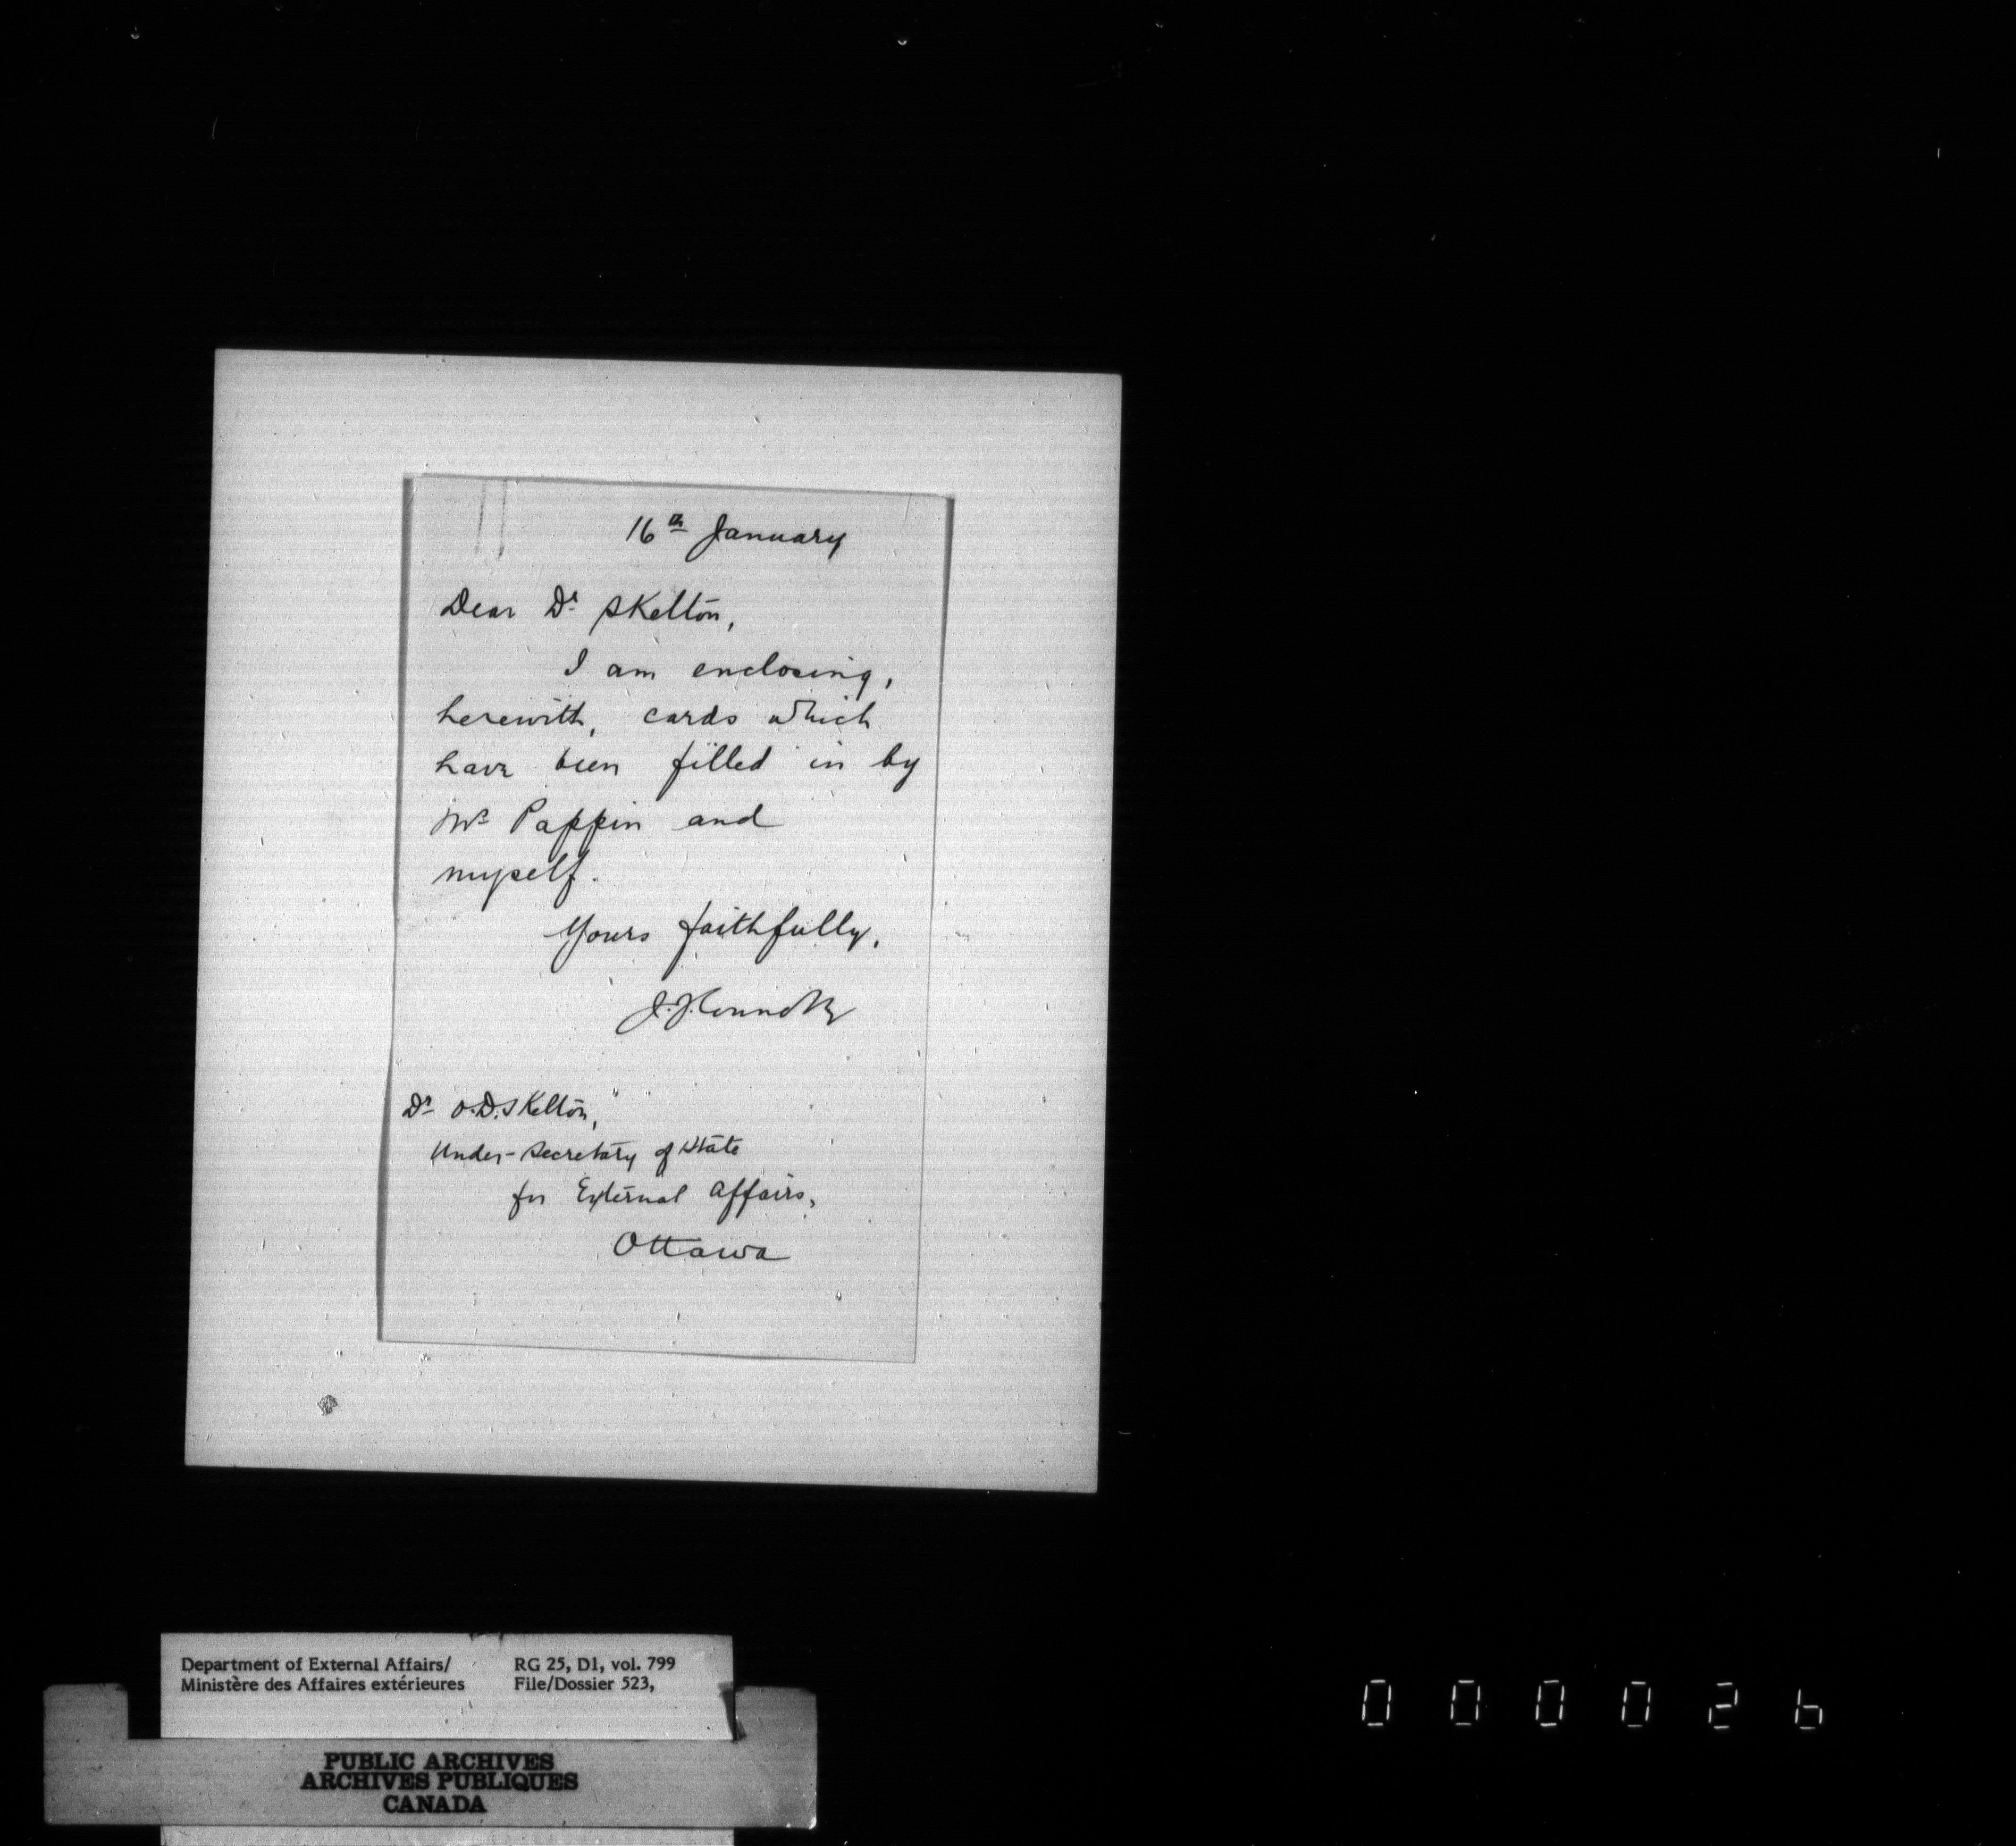 16th January
Dear Dr Skelton,
I am enclosing,
herewith, cards which
have been filled in by
Mr Pappin and
myself.
Yours faithfully,
J. J. Connolly
Dr O.D. Skelton,
Under-Secretary of State
for External Affairs,
Ottawa
Department of External Affairs/ RG 25, D1, vol. 799
Ministère des Affaires extérieures File/Dossier 523,
PUBLIC ARCHIVES
ARCHIVES PUBLIQUES
CANADA
000026